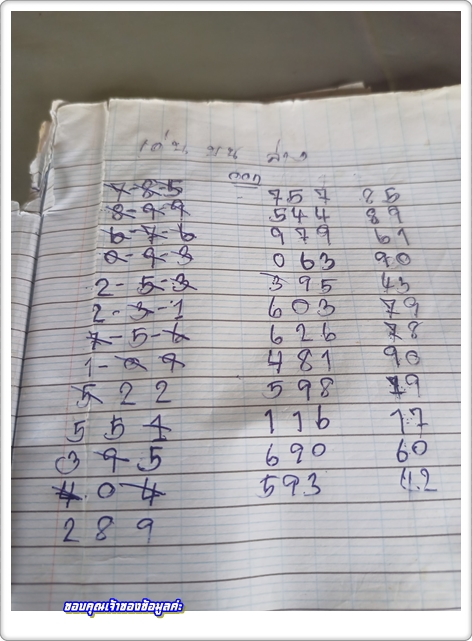 เด่น บน ล่าง
ออก
7-8-5 757 85
8-9-9 544 89
6-7-6 979 61
0-9-3 063 90
2-5-3 395 43
2-3-1 603 79
7-5-6 626 78
1-0-9 481 90
5 2 2 598 19
5 5 4 116 17
3 9 5 690 60
4 0 4 593 42
2 8 9
ขอบคุณเจ้าของข้อมูลค่ะ